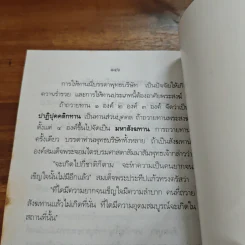 ๑๘๖
การให้ทานมีบรรดาพุทธบริษัท เป็นปัจจัยให้เกิ
ความร่ำรวย และการให้ทานประเภทนี้ต้องอาศัยพระสงฆ์
ถ้าถวายทาน ๑ องค์ ๒ องค์ ๓ องค์ จัดว่าเป็น
ปาฏิปุคคลิกทาน เป็นทานส่วนบุคคล ถ้าถวายทานพระสงฆ์
ตั้งแต่ ๔ องค์ขึ้นไปจัดเป็น มหาสังฆทาน การถวายทาน
ครั้งเดียว บรรดาท่านพุทธบริษัททั้งหลาย ถ้าเป็นสังฆทาน
องค์สมเด็จพระจอมไตรบรมศาสดาสัมมาสัมพุทธเจ้ากล่าวว่า
"จะเกิดไปกี่ชาติก็ตาม จะทำความเป็นคนยากจน
เข็ญใจนั้นไม่มีอีกแล้ว" สมเด็จพระประทีปแก้วทรงตรัสว่า
"ที่ใดมีความยากจนเข็ญใจมีความลำบาก คนที่ถวาย
สังฆทานแล้วไม่เกิดที่นั่น ที่ใดมีความอุดมสมบูรณ์จะเกิดใน
สถานที่นั้น"